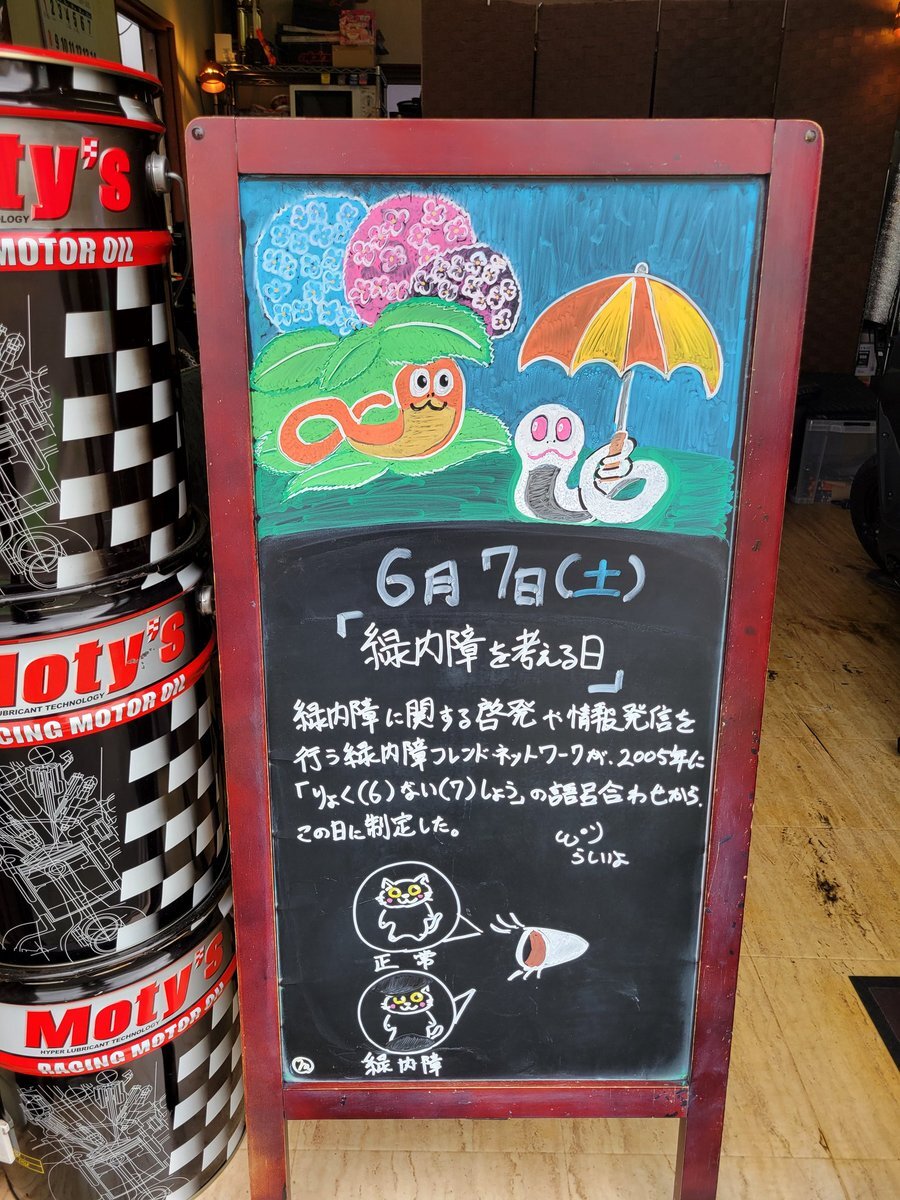 oty's
OLOGY
MOTOR OIL
Moty's
UBRICANT TECHNOLOGY
CING MOTOR OIL
Moty's
HYPER LUBRICANT TECHNOLOGY
RACING MOTOR OIL
6月7日(土)
「緑内障を考える日」
緑内障に関する啓発や情報発信を
行う緑内障フレンドネットワークが、2005年に
「りょく(6)ない(7)しょう」の語呂合わせから、
この日に制定した。
らしいよ
正常
緑内障